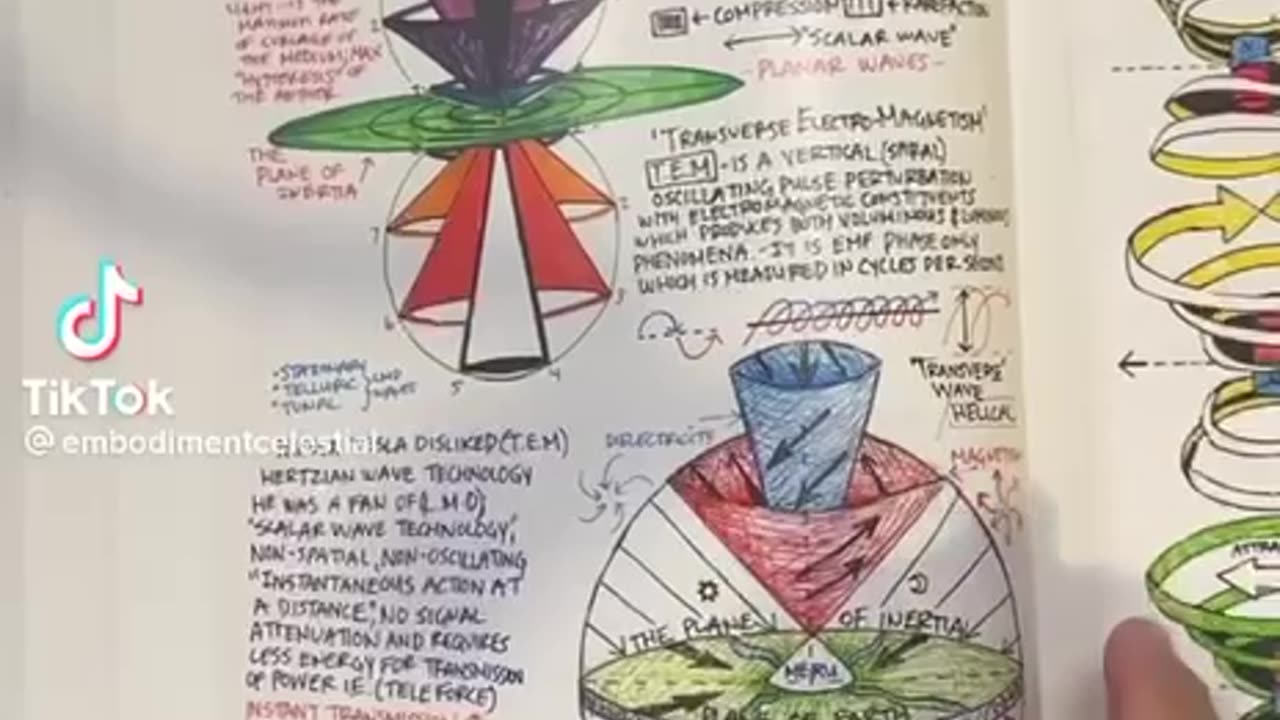 MAXIMUM RATE
OF
THE MEDIUM, MAX
"HYSTERESIS" OF
THE AETHER
← COMPRESSION
"SCALAR WAVE"
- PLANAR WAVES -
THE
PLANE OF
INERTIA
"TRANSVERSE ELECTRO-MAGNETISM"
T.E.M - IS A VERTICAL (SPIRAL)
OSCILLATING PULSE PERTURBATION
WITH ELECTROMAGNETIC CONSTITUENTS
WHICH PRODUCES BOTH VOLUMINOUS &
PHENOMENA. - IT IS EMF PHASE ONLY
WHICH IS MEASURED IN CYCLES PER
2
7
3
6
5
4
• STATIONARY
• TELLURIC
WAVES
"TRANSVERSE"
WAVE
HELICAL
TikTok
@embodimentcelestial
DISLIKED (T.E.M)
HERTZIAN WAVE TECHNOLOGY
HE WAS A FAN OF (L.M.D)
"SCALAR WAVE TECHNOLOGY",
NON-SPATIAL, NON-OSCILLATING
"INSTANTANEOUS ACTION AT
A DISTANCE", NO SIGNAL
ATTENUATION AND REQUIRES
LESS ENERGY FOR TRANSMISSION
OF POWER I.E. (TELEFORCE)
INSTANT
DIELECTRICITY
THE PLANE OF INERTIA
MERU
PLANE OF EARTH